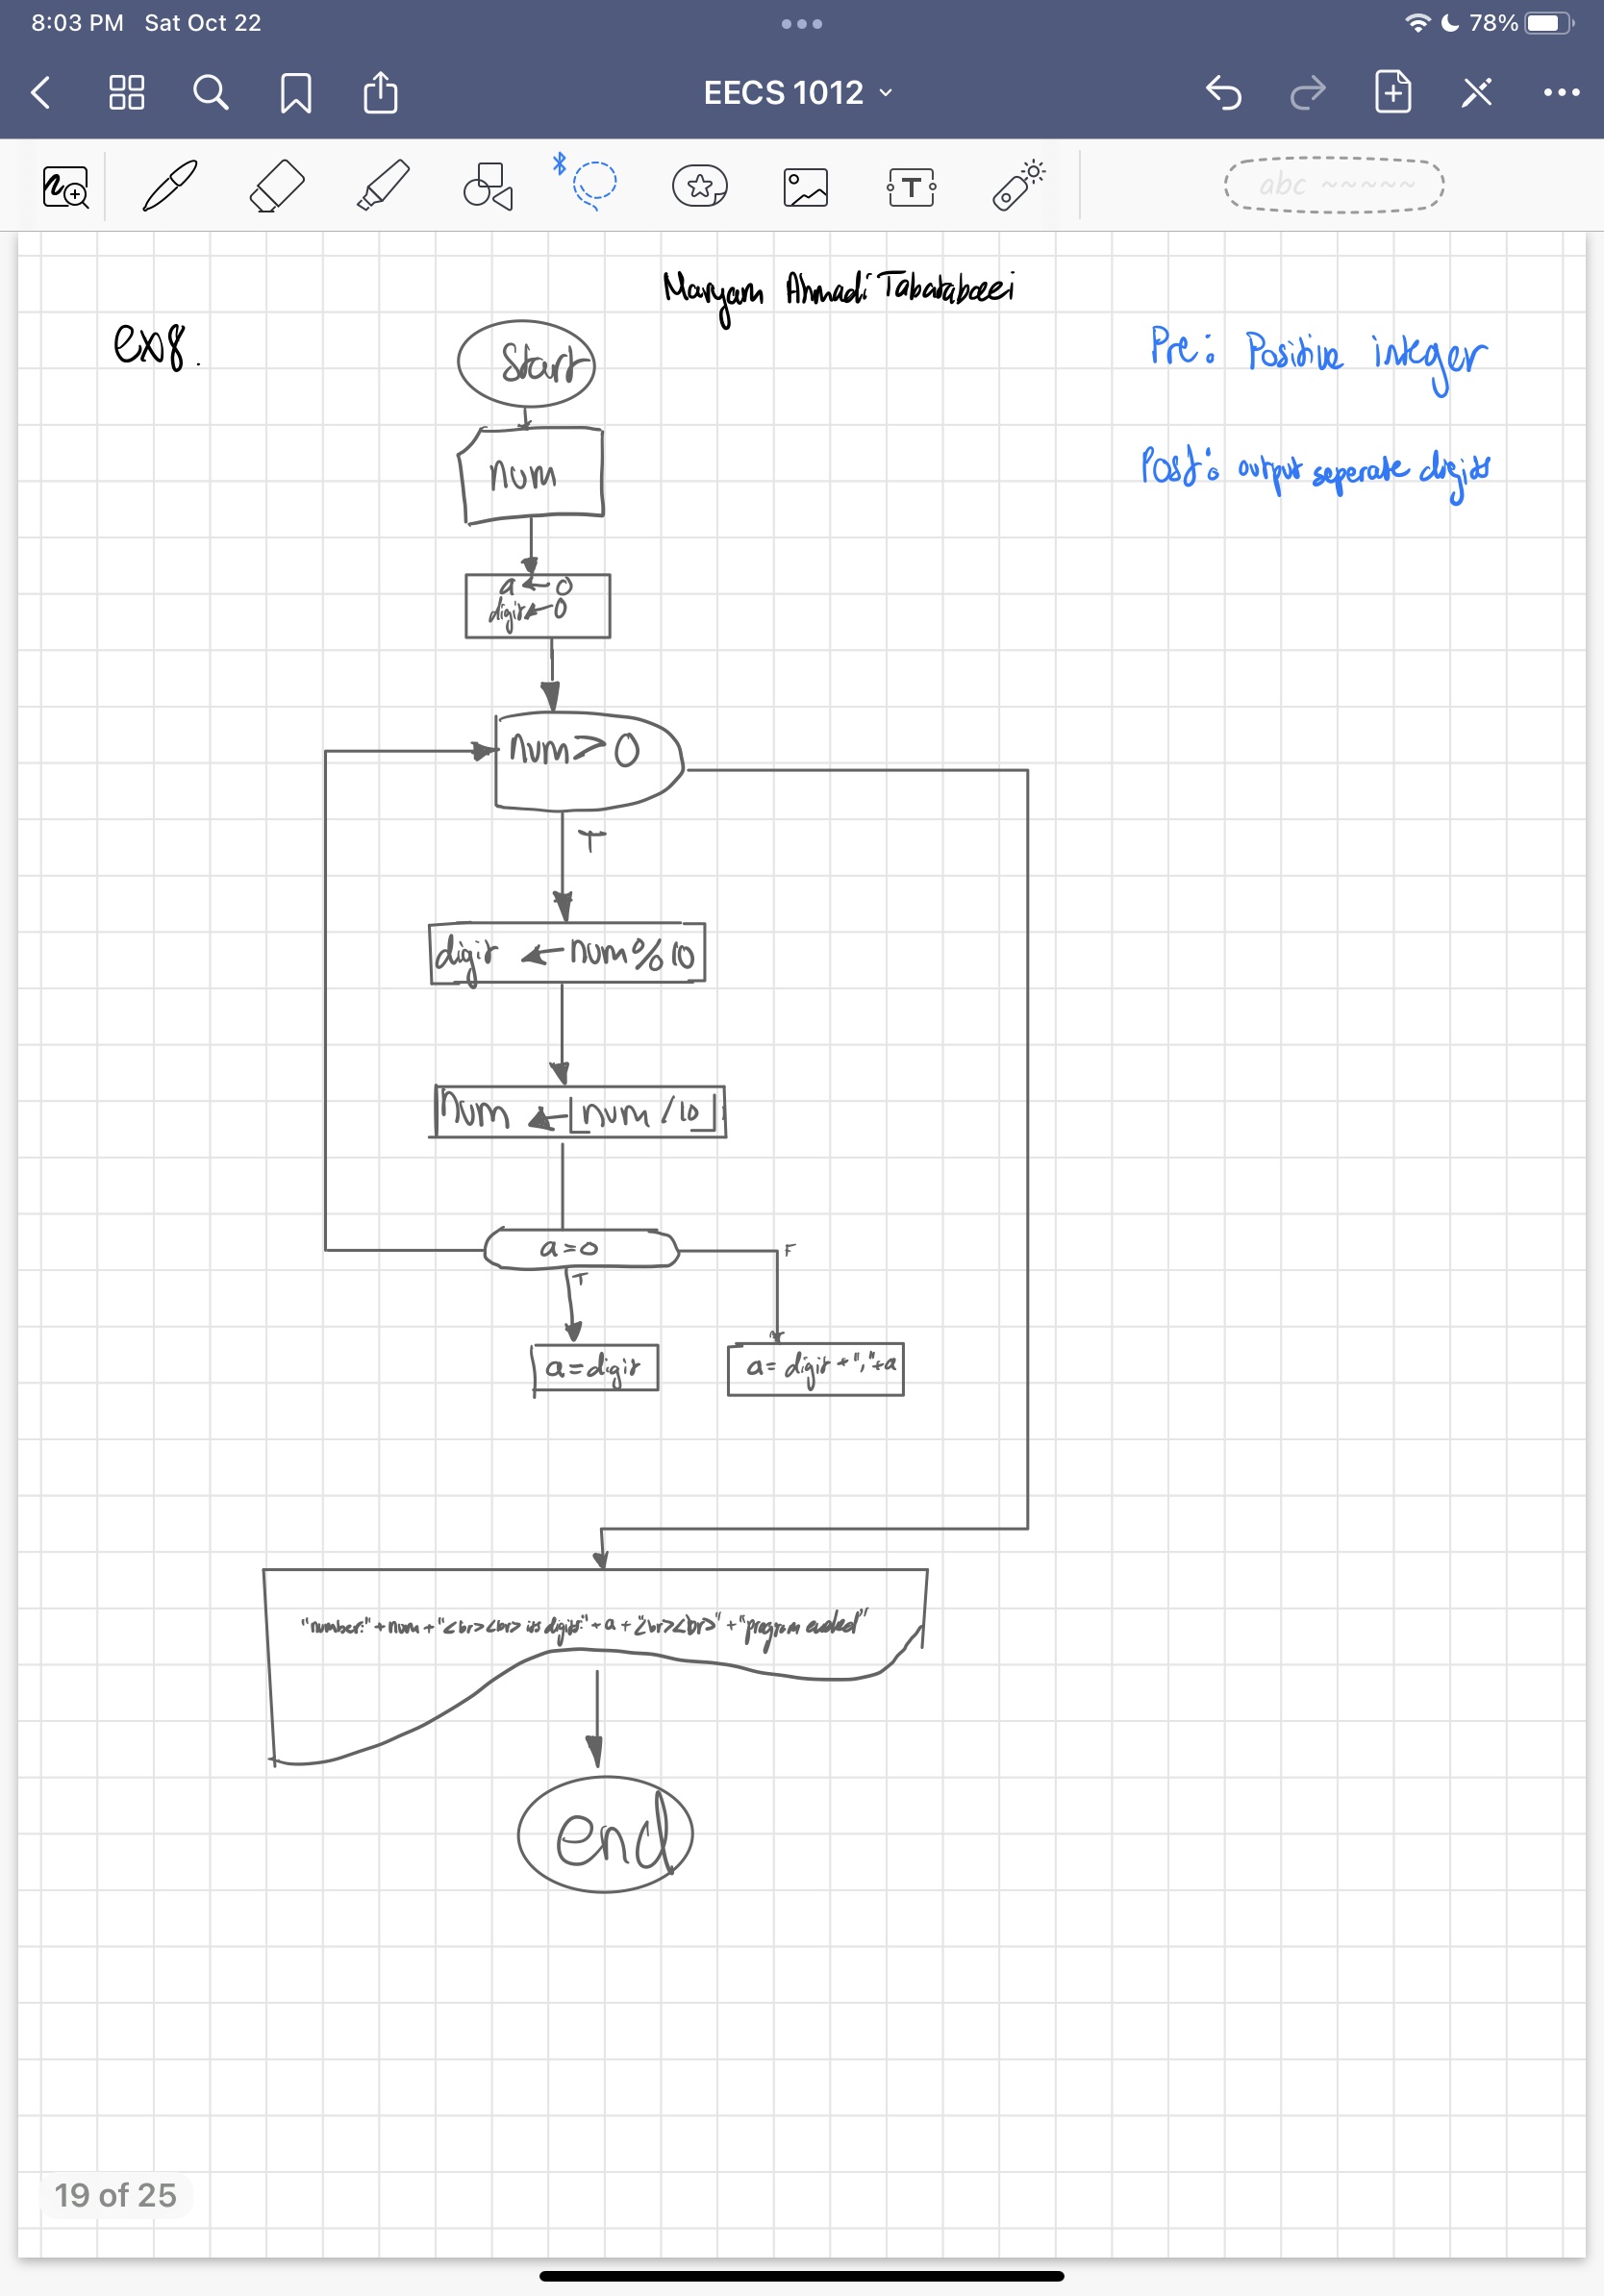 8:03 PM Sat Oct 22
78%
EECS 1012
T
abc
Maryam Ahmadi Tabatabaeei
ex8.
Start
Pre: Positive integer
num
Post: output seperate digits
a ← 0
digit ← 0
num > 0
T
digit ← num % 10
num ← ⌊num / 10⌋
a = 0
F
T
a = digit
a = digit + "," + a
"number:" + num + "<br><br> its digits:" + a + "<br><br>" + "program ended"
end
19 of 25